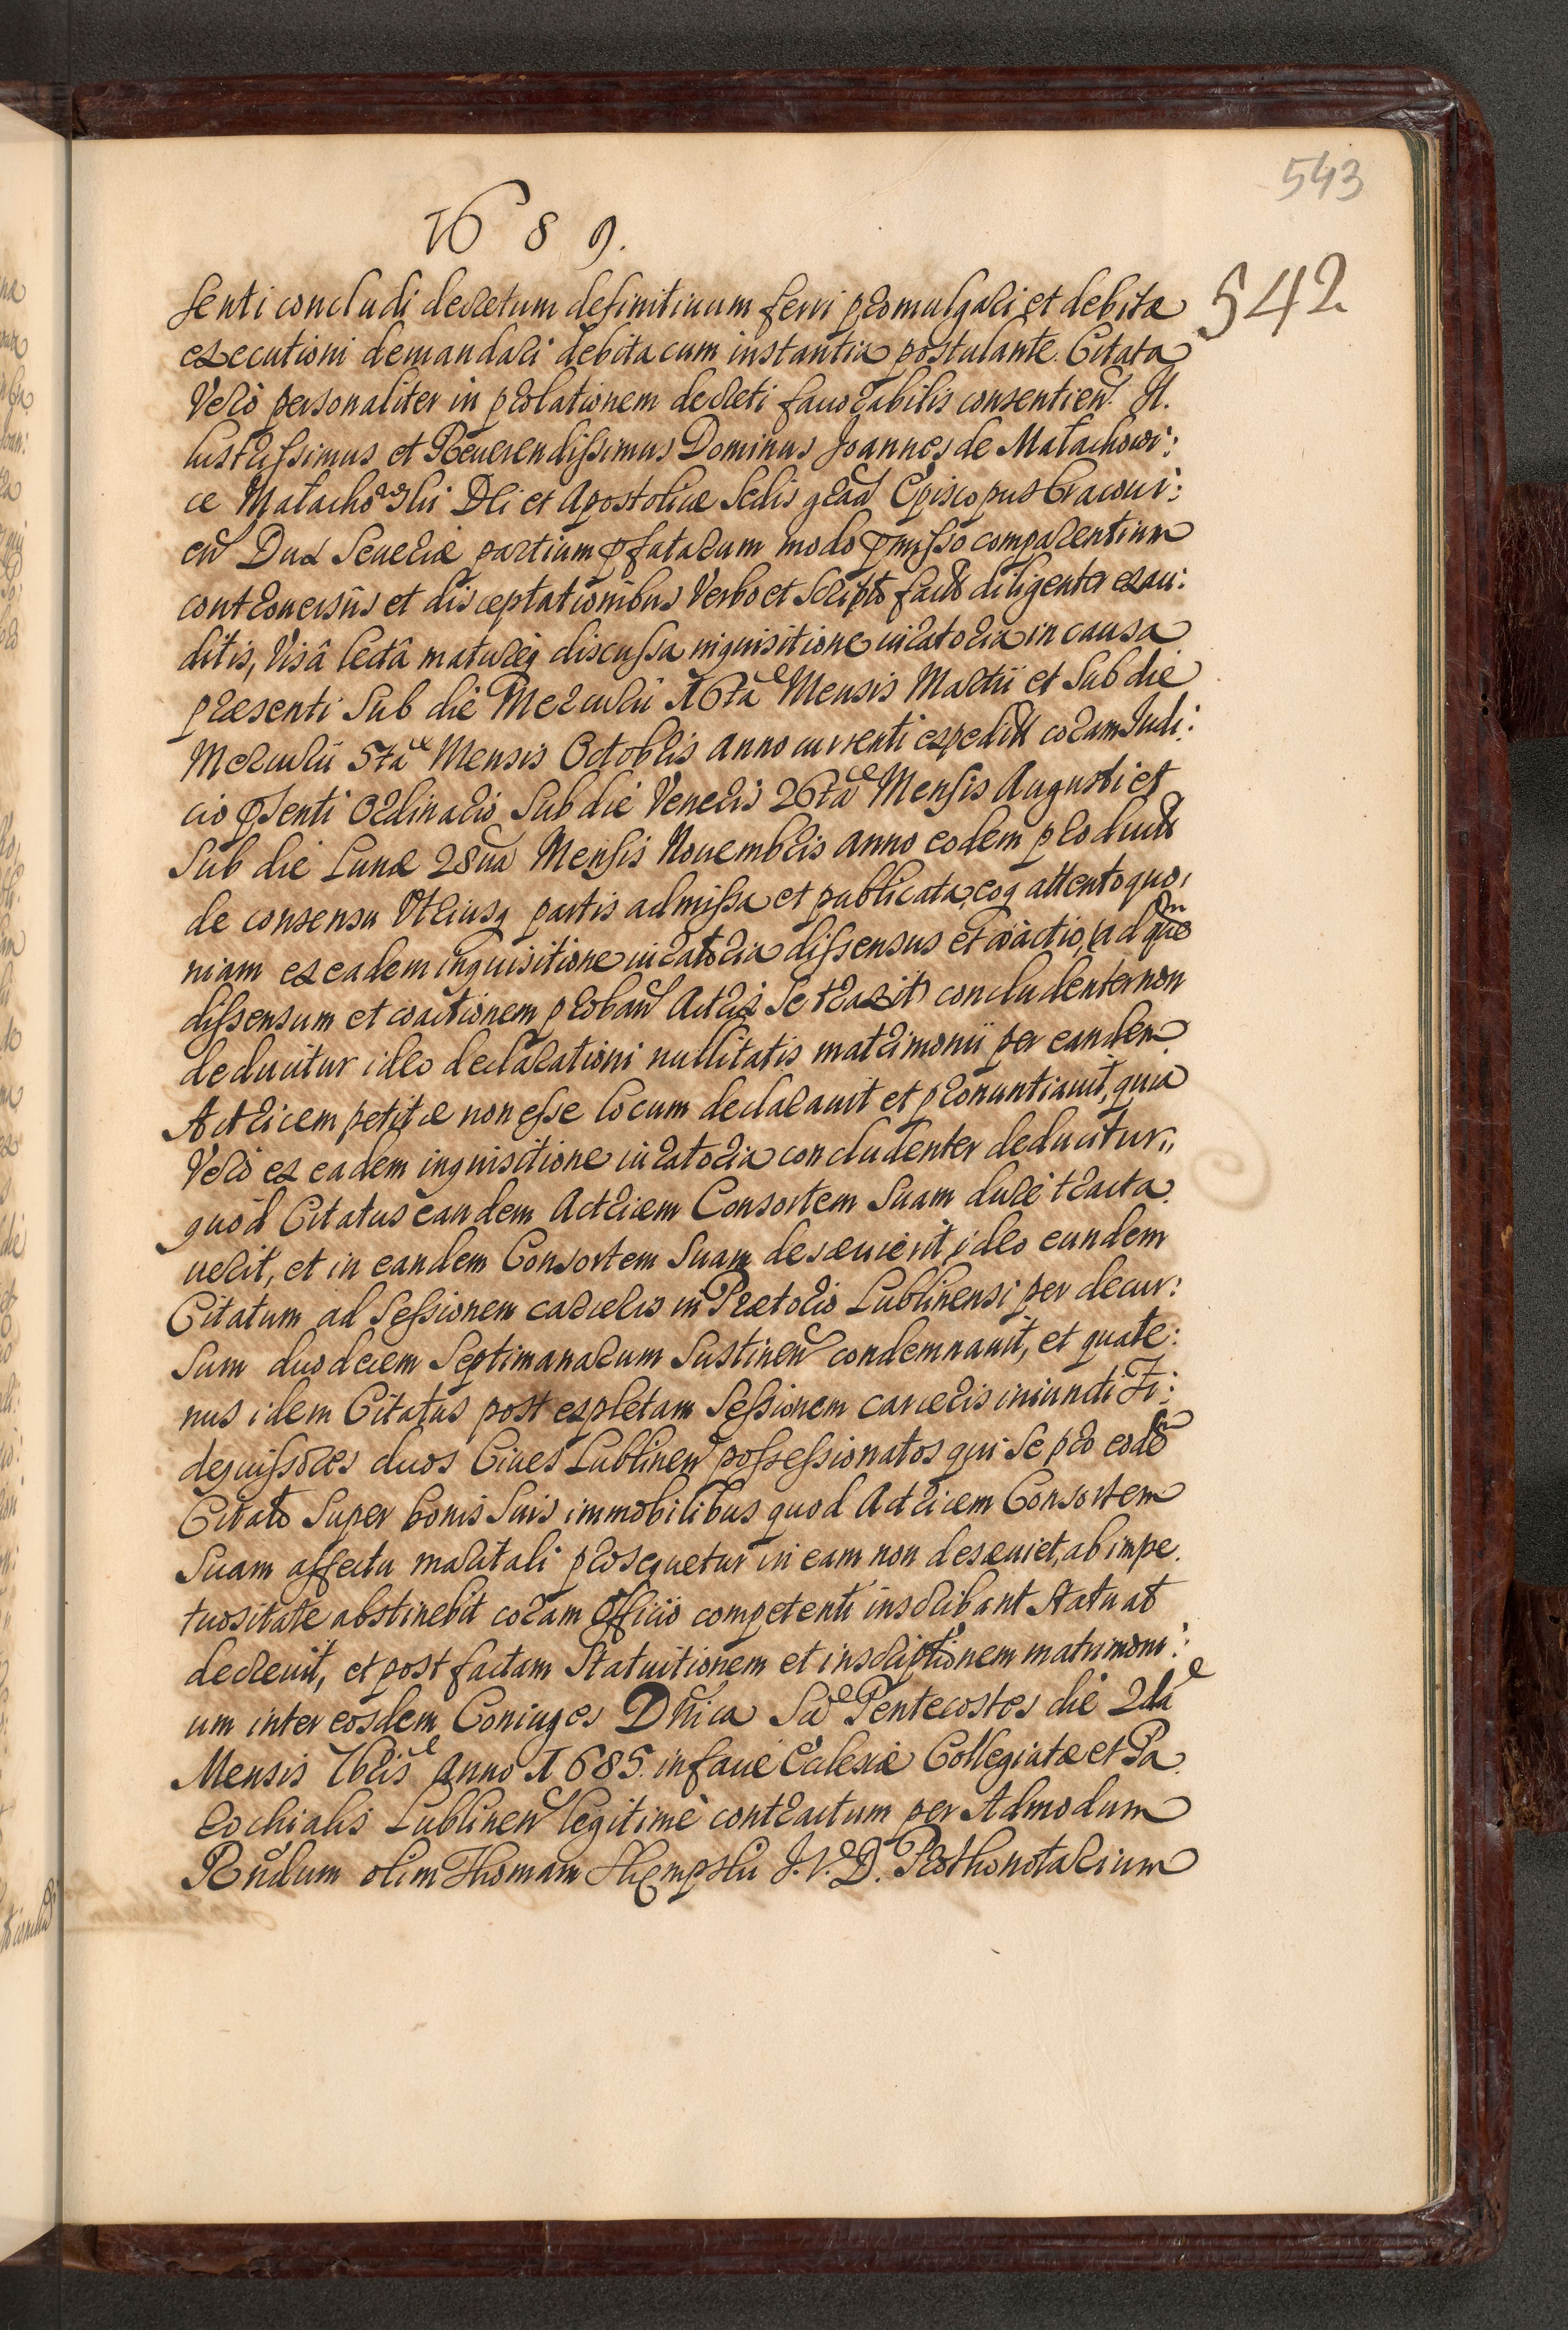 543
1689.
542
senti concludi decretum definitiuum ferri promulgari et debitæ
executioni demandari debita cum instantia postulante. Citata
Vero personaliter in prolationem decreti fauorabilis consentien. Il.
lustrissimus et Reuerendissimus Dominus Joannes de Małachowi:
ce Małachowski Dei et Apostolicæ Sedis grãa Episcopus Cracoui:
en Dux Seueriæ partium pfatarum modo pmisso comparentium
controuersiis et disceptationibus Verbo et Scripto factis diligenter exau:
ditis, Visâ lectâ matureq discussa inquisitione iuratoria in causa
præsenti Sub die Mercurii 16ta Mensis Martii et Sub die
Mercurii 5ta Mensis Octobris anno currenti expedita coram Judi:
cio psenti Ordinario Sub die Veneris 26ta Mensis Augusti et
Sub die Lunæ 28ua Mensis Nouembris anno eodem producta
de consensu Utriusq partis admissa et publicata, eoq attento quo,
niam ex eadem inquisitione iuratoria dissensus et coactio, ad quẽ
dissensum et coactionem proban Actrix se traxit concludenter non
deducitur ideo declarationi nullitatis matrimonii per eandem
Actricem petitæ non esse locum declarauit et pronuntiauit, quia
Vero ex eadem inquisitione iuratoria concludenter deducitur,,
quod Citatus eandem Actricem Consortem Suam dure tracta
uerit, et in eandem Consortem Suam desæuierit, ideo eundem
Citatum ad Sessionem carceris in Prætorio Lublinensi per decur:
sum duodecem Septimanarum Sustinen condemnauit, et quate:
nus idem Citatus post expletam Sessionem carceris iniuncti Fi:
deiussores duos Ciues Lublinen possessionatos qui Se pro eodẽ
Citato Super bonis Suis immobilibus quod Actricem Consortem
Suam affectu maritali prosequetur in eam non desæuiet, ab impe.
tuositate abstinebit coram Officio competenti inscribant Statuat
decreuit, et post factam Statuitionem et inscriptionem matrimoni:
um inter eosdem Coniuges Dnica Sae Pentecostes die 2da
Mensis 7bris Anno 1685. in facie Eclesiæ Collegiatæ et Pa
rochialis Lublinen legitime contractum per Admodum
Rndum olim Thomam J.V.D. Prothonotarium